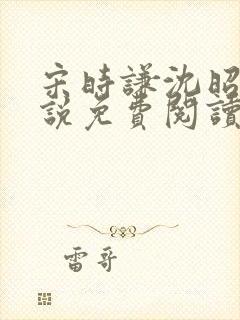 宋時謙沈昭
說免費閱讀
雷哥